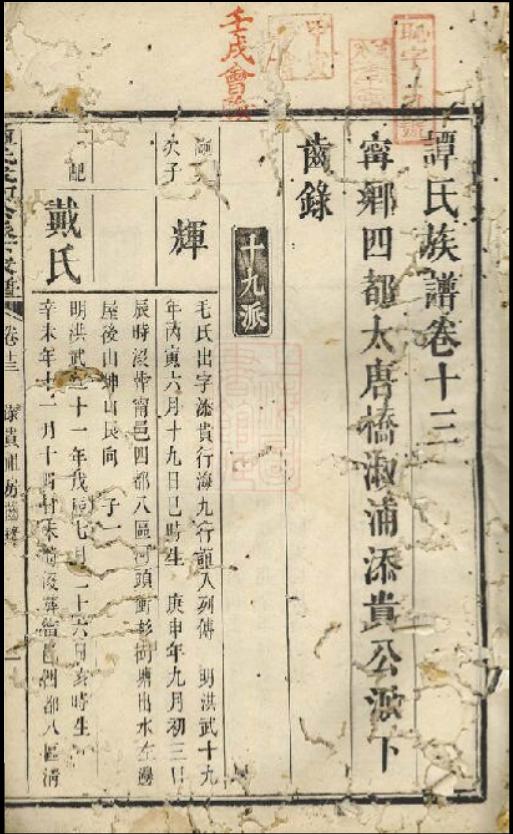 譚氏族譜卷十三
甯鄉四都太唐橋溆浦添貴公派下
齒錄
十九派
次子
輝
毛氏出字添貴行海九行 入列傳 明洪武十九
年丙寅六月十九日巳時生 庚申年九月初三日
辰時沒葬甯邑四都八區河頭衝彭 塘出水左邊
屋後山坤山艮向 子一
配
戴氏
明洪武 十一年戊 七月二十六日亥時生
辛未年十一月十四日未時沒葬甯邑四都八區清
卷十三
添貴祖房齒錄
一
壬戌會